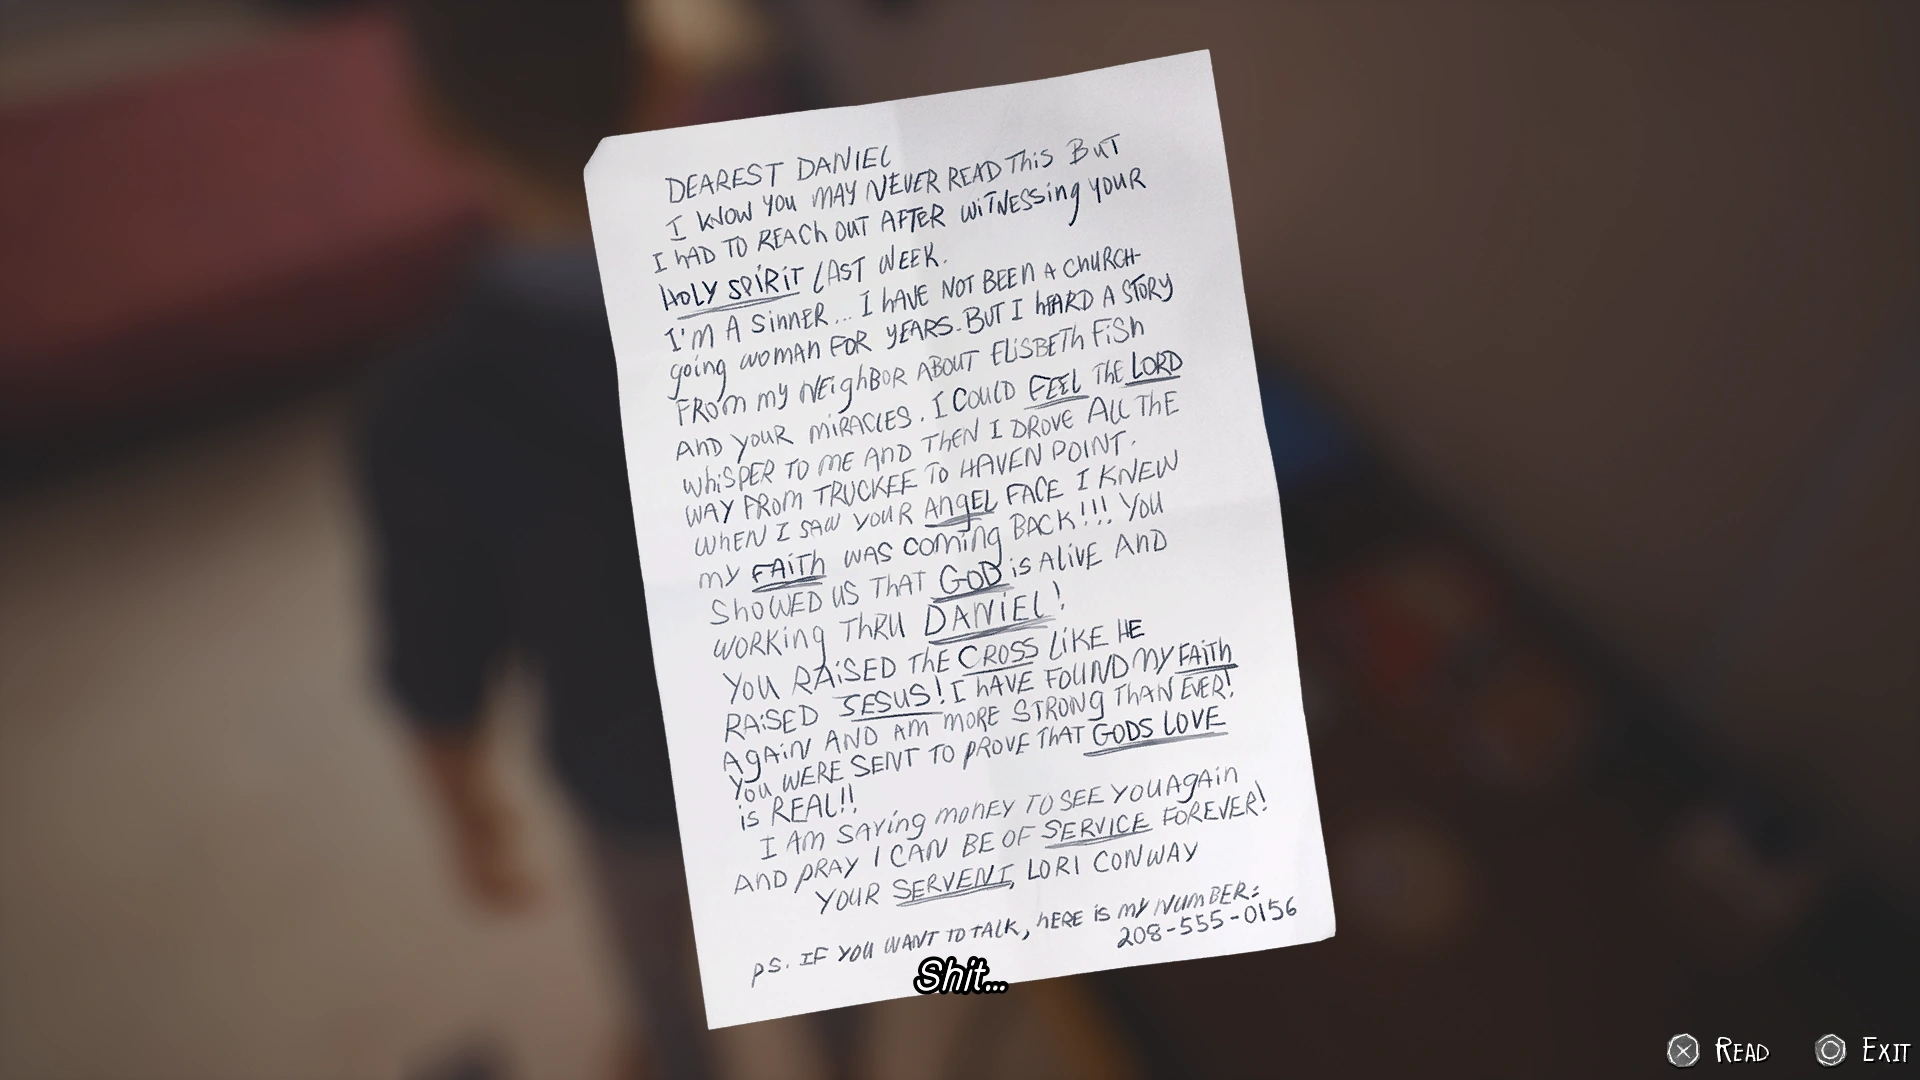 DEAREST DANIEL
I KNOW YOU MAY NEVER READ THIS BUT
I HAD TO REACH OUT AFTER WITNESSING YOUR
HOLY SPIRIT LAST WEEK.
I'M A SINNER... I HAVE NOT BEEN A CHURCH-
GOING WOMAN FOR YEARS. BUT I HEARD A STORY
FROM MY NEIGHBOR ABOUT ELISBETH FISH
AND YOUR MIRACLES. I COULD FEEL THE LORD
WHISPER TO ME AND THEN I DROVE ALL THE
WAY FROM TRUCKEE TO HAVEN POINT.
WHEN I SAW YOUR ANGEL FACE I KNEW
MY FAITH WAS COMING BACK!!! YOU
SHOWED US THAT GOD IS ALIVE AND
WORKING THRU DANIEL!
YOU RAISED THE CROSS LIKE HE
RAISED JESUS! I HAVE FOUND MY FAITH
AGAIN AND AM MORE STRONG THAN EVER!
YOU WERE SENT TO PROVE THAT GODS LOVE
IS REAL!!
I AM SAVING MONEY TO SEE YOU AGAIN
AND PRAY I CAN BE OF SERVICE FOREVER!
YOUR SERVENT, LORI CONWAY
PS. IF YOU WANT TO TALK, HERE IS MY NUMBER:
208-555-0156
Shit...
READ EXIT